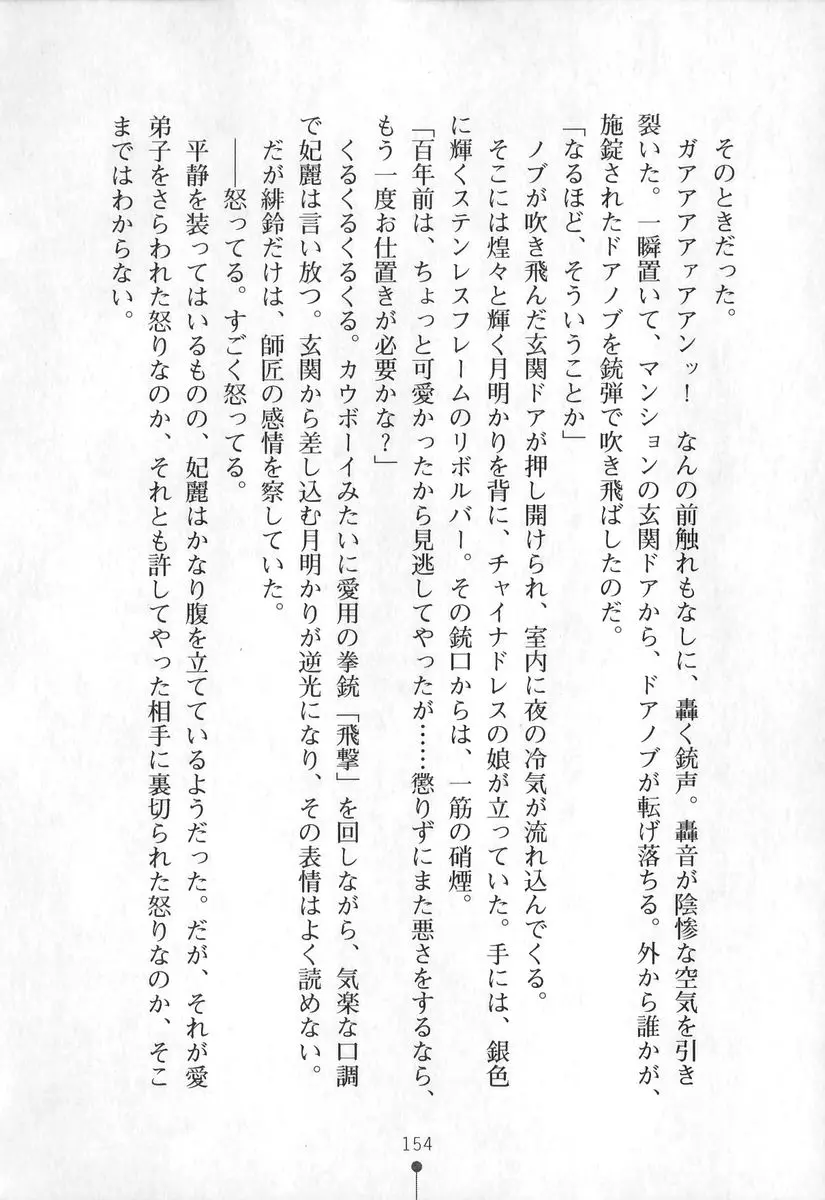 そのときだった。
ガアアアアァアアンッ！　なんの前触れもなしに、轟く銃声。轟音が陰惨な空気を引き
裂いた。一瞬置いて、マンションの玄関ドアから、ドアノブが転げ落ちる。外から誰かが、
施錠されたドアノブを銃弾で吹き飛ばしたのだ。
「なるほど、そういうことか」
ノブが吹き飛んだ玄関ドアが押し開けられ、室内に夜の冷気が流れ込んでくる。
そこには煌々と輝く月明かりを背に、チャイナドレスの娘が立っていた。手には、銀色
に輝くステンレスフレームのリボルバー。その銃口からは、一筋の硝煙。
「百年前は、ちょっと可愛かったから見逃してやったが……懲りずにまた悪さをするなら、
もう一度お仕置きが必要かな？」
くるくるくるくる。カウボーイみたいに愛用の拳銃「飛撃」を回しながら、気楽な口調
で妃麗は言い放つ。玄関から差し込む月明かりが逆光になり、その表情はよく読めない。
だが緋鈴だけは、師匠の感情を察していた。
――怒ってる。すごく怒ってる。
平静を装ってはいるものの、妃麗はかなり腹を立てているようだった。だが、それが愛
弟子をさらわれた怒りなのか、それとも許してやった相手に裏切られた怒りなのか、そこ
まではわからない。
154